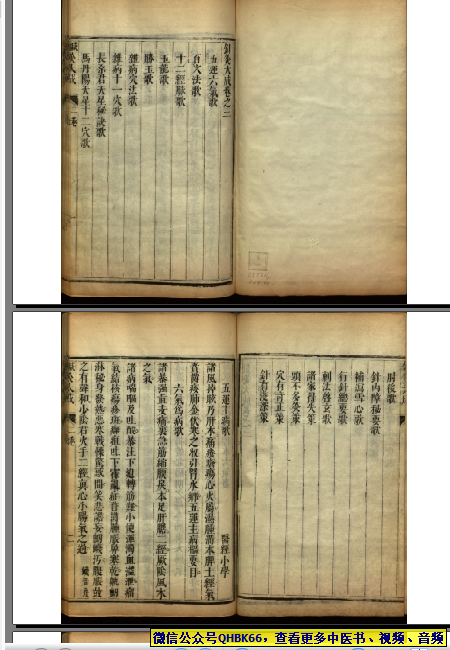 針灸大成卷之三
五運六氣歌
百穴法歌
十二經脈歌
玉龍歌
勝玉歌
雜病穴法歌
雜病十一穴歌
長桑君天星秘訣歌
馬丹陽天星十二穴歌
肘後歌
針內障秘要歌
補瀉雪心歌
行針總要歌
刺法啓玄歌
諸家得失策
頭不多灸策
穴有奇正策
針有淺深策
五運主病歌 醫經小學
諸風掉眩乃肝木痛痒瘡瘍心火屬濕腫滿本脾土經氣
賁鬱痿肺金伏寒之收引腎水鄉五運主病樞要目
六氣為病歌
諸暴強直支痛裏急筋縮腹戾本足肝膽二經厥陰風木
之氣
諸病喘嘔及吐酸暴注下迫轉筋難小便渾濁血溢泄瘤
氣結核瘍疹斑癰疽吐下霍亂症瞀鬱腫脹鼻塞乾鼽衄
淋秘身發熱惡寒戰慄驚惑間笑悲譫妄衄衊污腹脹鼓
之有聲和少陰君火手二經真心小腸氣之過
微信公众号QHBK66，查看更多中医书、视频、音频